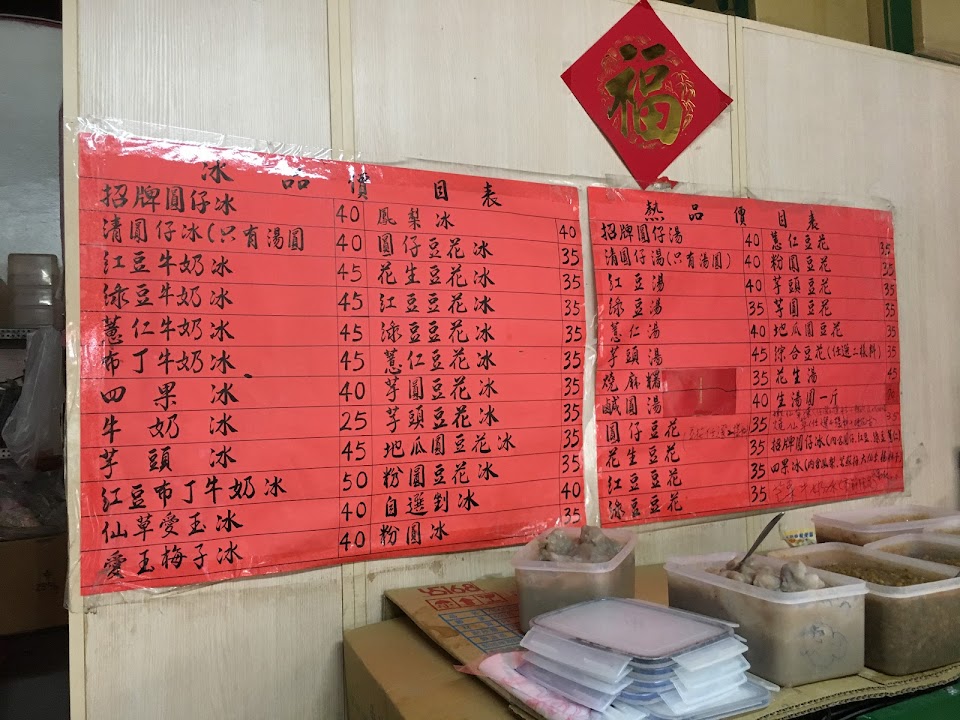 福
冰品價目表
招牌圓仔冰 40
清圓仔冰(只有湯圓 40
紅豆牛奶冰 45
綠豆牛奶冰 45
薏仁牛奶冰 45
布丁牛奶冰 45
四果冰 40
牛奶冰 25
芋頭冰 45
紅豆布丁牛奶冰 50
仙草愛玉冰 40
愛玉梅子冰 40
鳳梨冰 40
圓仔豆花冰 35
花生豆花冰 35
紅豆豆花冰 35
綠豆豆花冰 35
薏仁豆花冰 35
芋圓豆花冰 35
芋頭豆花冰 35
地瓜圓豆花冰 35
粉圓豆花冰 35
自選剉冰 40
粉圓冰 35
熱品價目表
招牌圓仔湯 40
清圓仔湯(只有湯圓) 40
紅豆湯 40
綠豆湯 35
薏仁湯 40
芋頭湯 45
燒麻糬 35
鹹圓湯 40
圓仔豆花 35
花生豆花 35
紅豆豆花 35
綠豆豆花 35
薏仁豆花 35
粉圓豆花 35
芋頭豆花 35
芋圓豆花 35
地瓜圓豆花 35
綜合豆花(任選二樣料) 35
花生湯 45
生湯圓一斤
招牌圓仔冰
四果冰